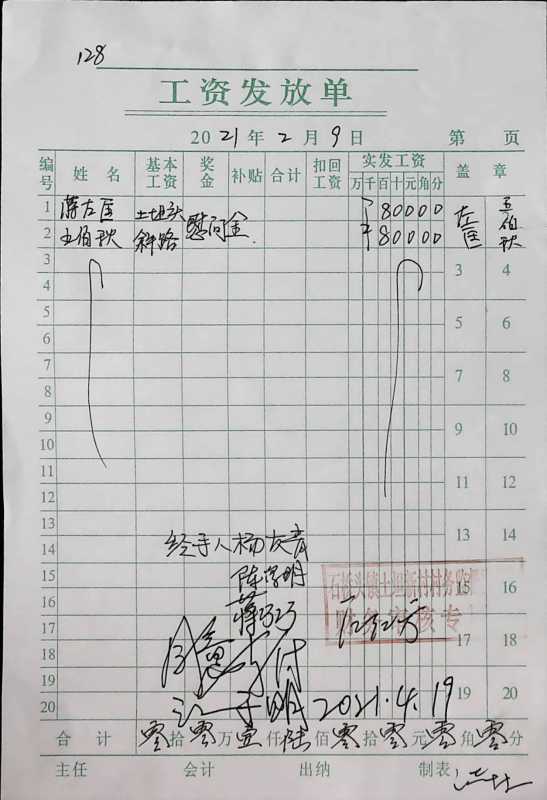 128
工资发放单
2021年2月9日 第 页
编号 姓名 基本工资 奖金 补贴 合计 扣回工资 实发工资 万千百十元角分 盖章
1 蒋左匡 土坦头 慰问金 ¥80000 左匡
2 王伯秋 斜路 ¥80000 王伯秋
3 3 4
4
5 5 6
6
7 7 8
8
9 9 10
10
11 11 12
12
13 13 14
14
经手人杨友青
15 15 16
陈学明
16
蒋巧巧
石桥头镇土坦新村村务监
财务审核专
17 17 18
18
同意支付
19 19 20
20
江子明 2021.4.19
合计 零拾零万壹仟陆佰零拾零元零角零分
主任 会计 出纳 制表